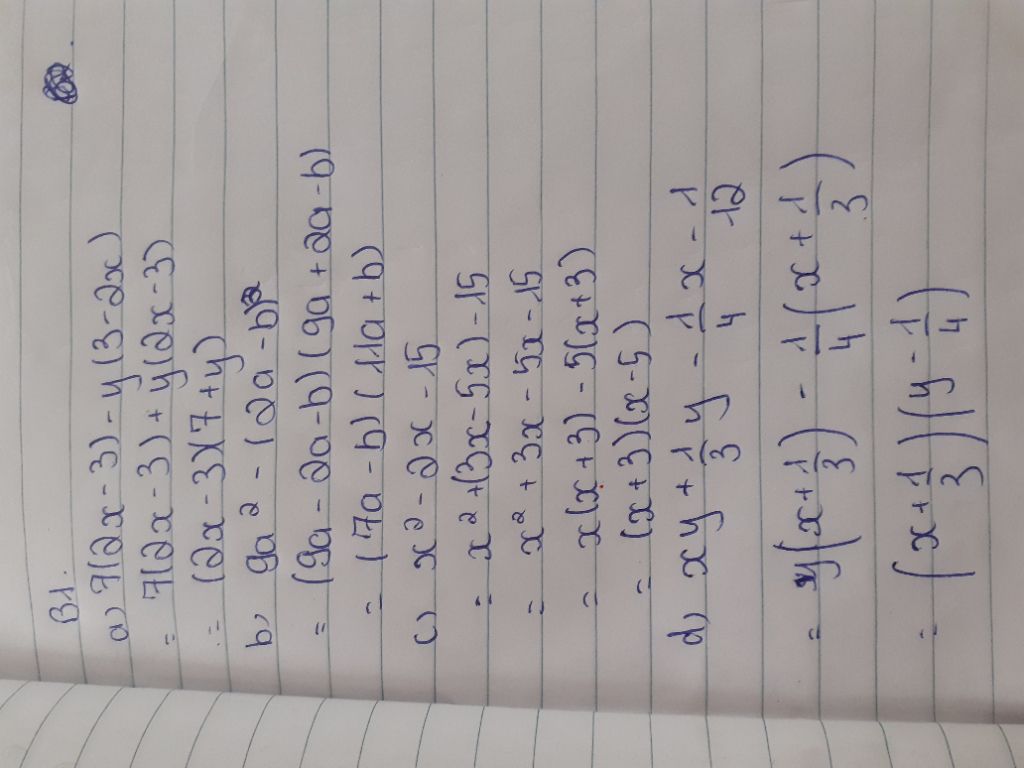 B1.
a) 7(2x-3)-y(3-2x)
= 7(2x-3)+y(2x-3)
= (2x-3)(7+y)
b, 9a² - (2a-b)²
= (9a-2a-b)(9a+2a-b)
= (7a-b)(11a+b)
c) x²-2x-15
= x²+(3x-5x)-15
= x²+3x-5x-15
= x(x+3)-5(x+3)
= (x+3)(x-5)
d) xy+1/3y-1/4x-1/12
= y(x+1/3)-1/4(x+1/3)
= (x+1/3)(y-1/4)